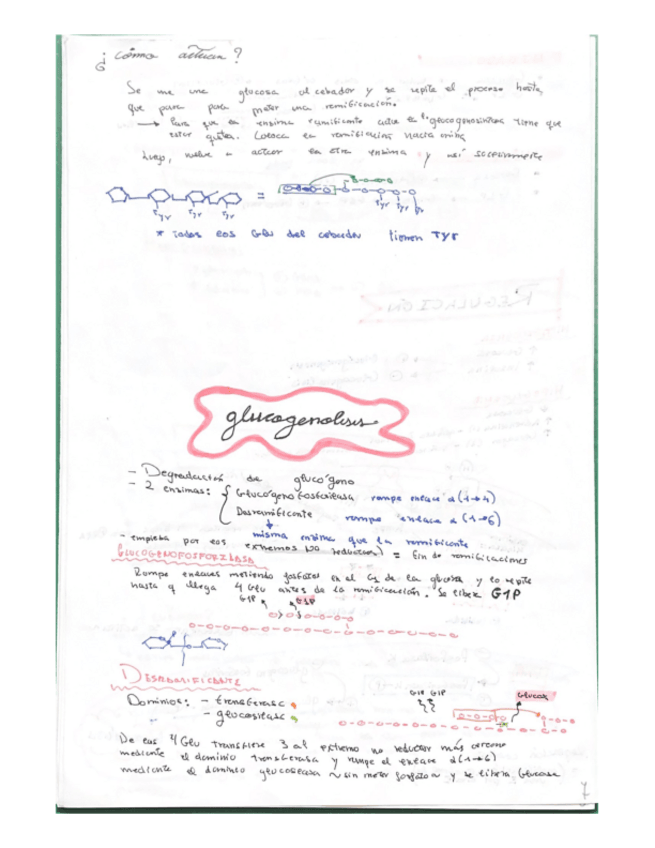 ¿cómo actúan?
Se une una glucosa al cebador y se repite el proceso hasta
que para para meter una ramificación.
→ Para que la enzima ramificante actúe la glucogenosintasa tiene que
estar quieta. Coloca la ramificación hacia arriba
Luego, vuelve a actuar la otra enzima y así sucesivamente
=
Tyr Tyr Tyr
Tyr Tyr Tyr
* Todas las Glu del cebador tienen TYR
REGULACIÓN
glucogenolisis
- Degradación de glucógeno
- 2 enzimas: { Glucógeno fosforilasa rompe enlace α(1→4)
Desramificante rompe enlace α(1→6)
misma enzima que la ramificante
- empieza por los extremos (no reductor) = fin de ramificaciones
GLUCOGENOFOSFORILASA
Rompe enlaces metiendo fosfatos en el C1 de la glucosa y lo repite
hasta q llega 4 Glu antes de la ramificación. Se libera G1P
G1P G1P
DESRAMIFICANTE
Dominios: - transferasa
- glucosilasa
G1P G1P
Glucosa
De las 4 Glu transfiere 3 al extremo no reductor más cercano
mediante el dominio transferasa y rompe el enlace α(1→6)
mediante el dominio glucosilasa ~ sin meter fosfato ~ y se libera Glucosa
7